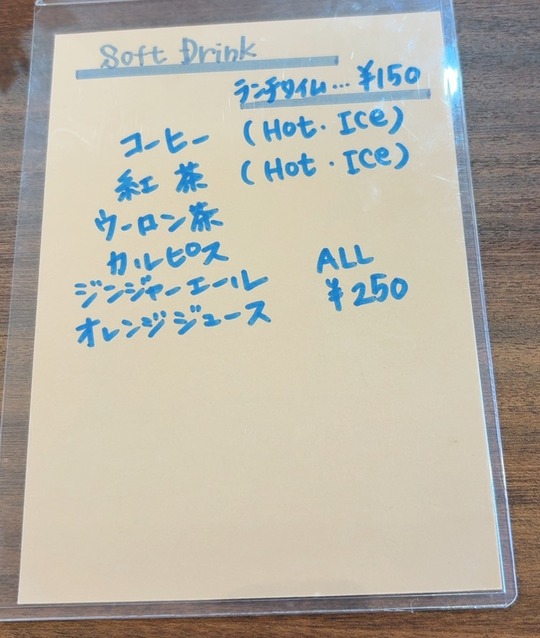 Soft Drink
ランチタイム…¥150
コーヒー (Hot・Ice)
紅茶 (Hot・Ice)
ウーロン茶
カルピス
ジンジャーエール ALL
オレンジジュース ¥250